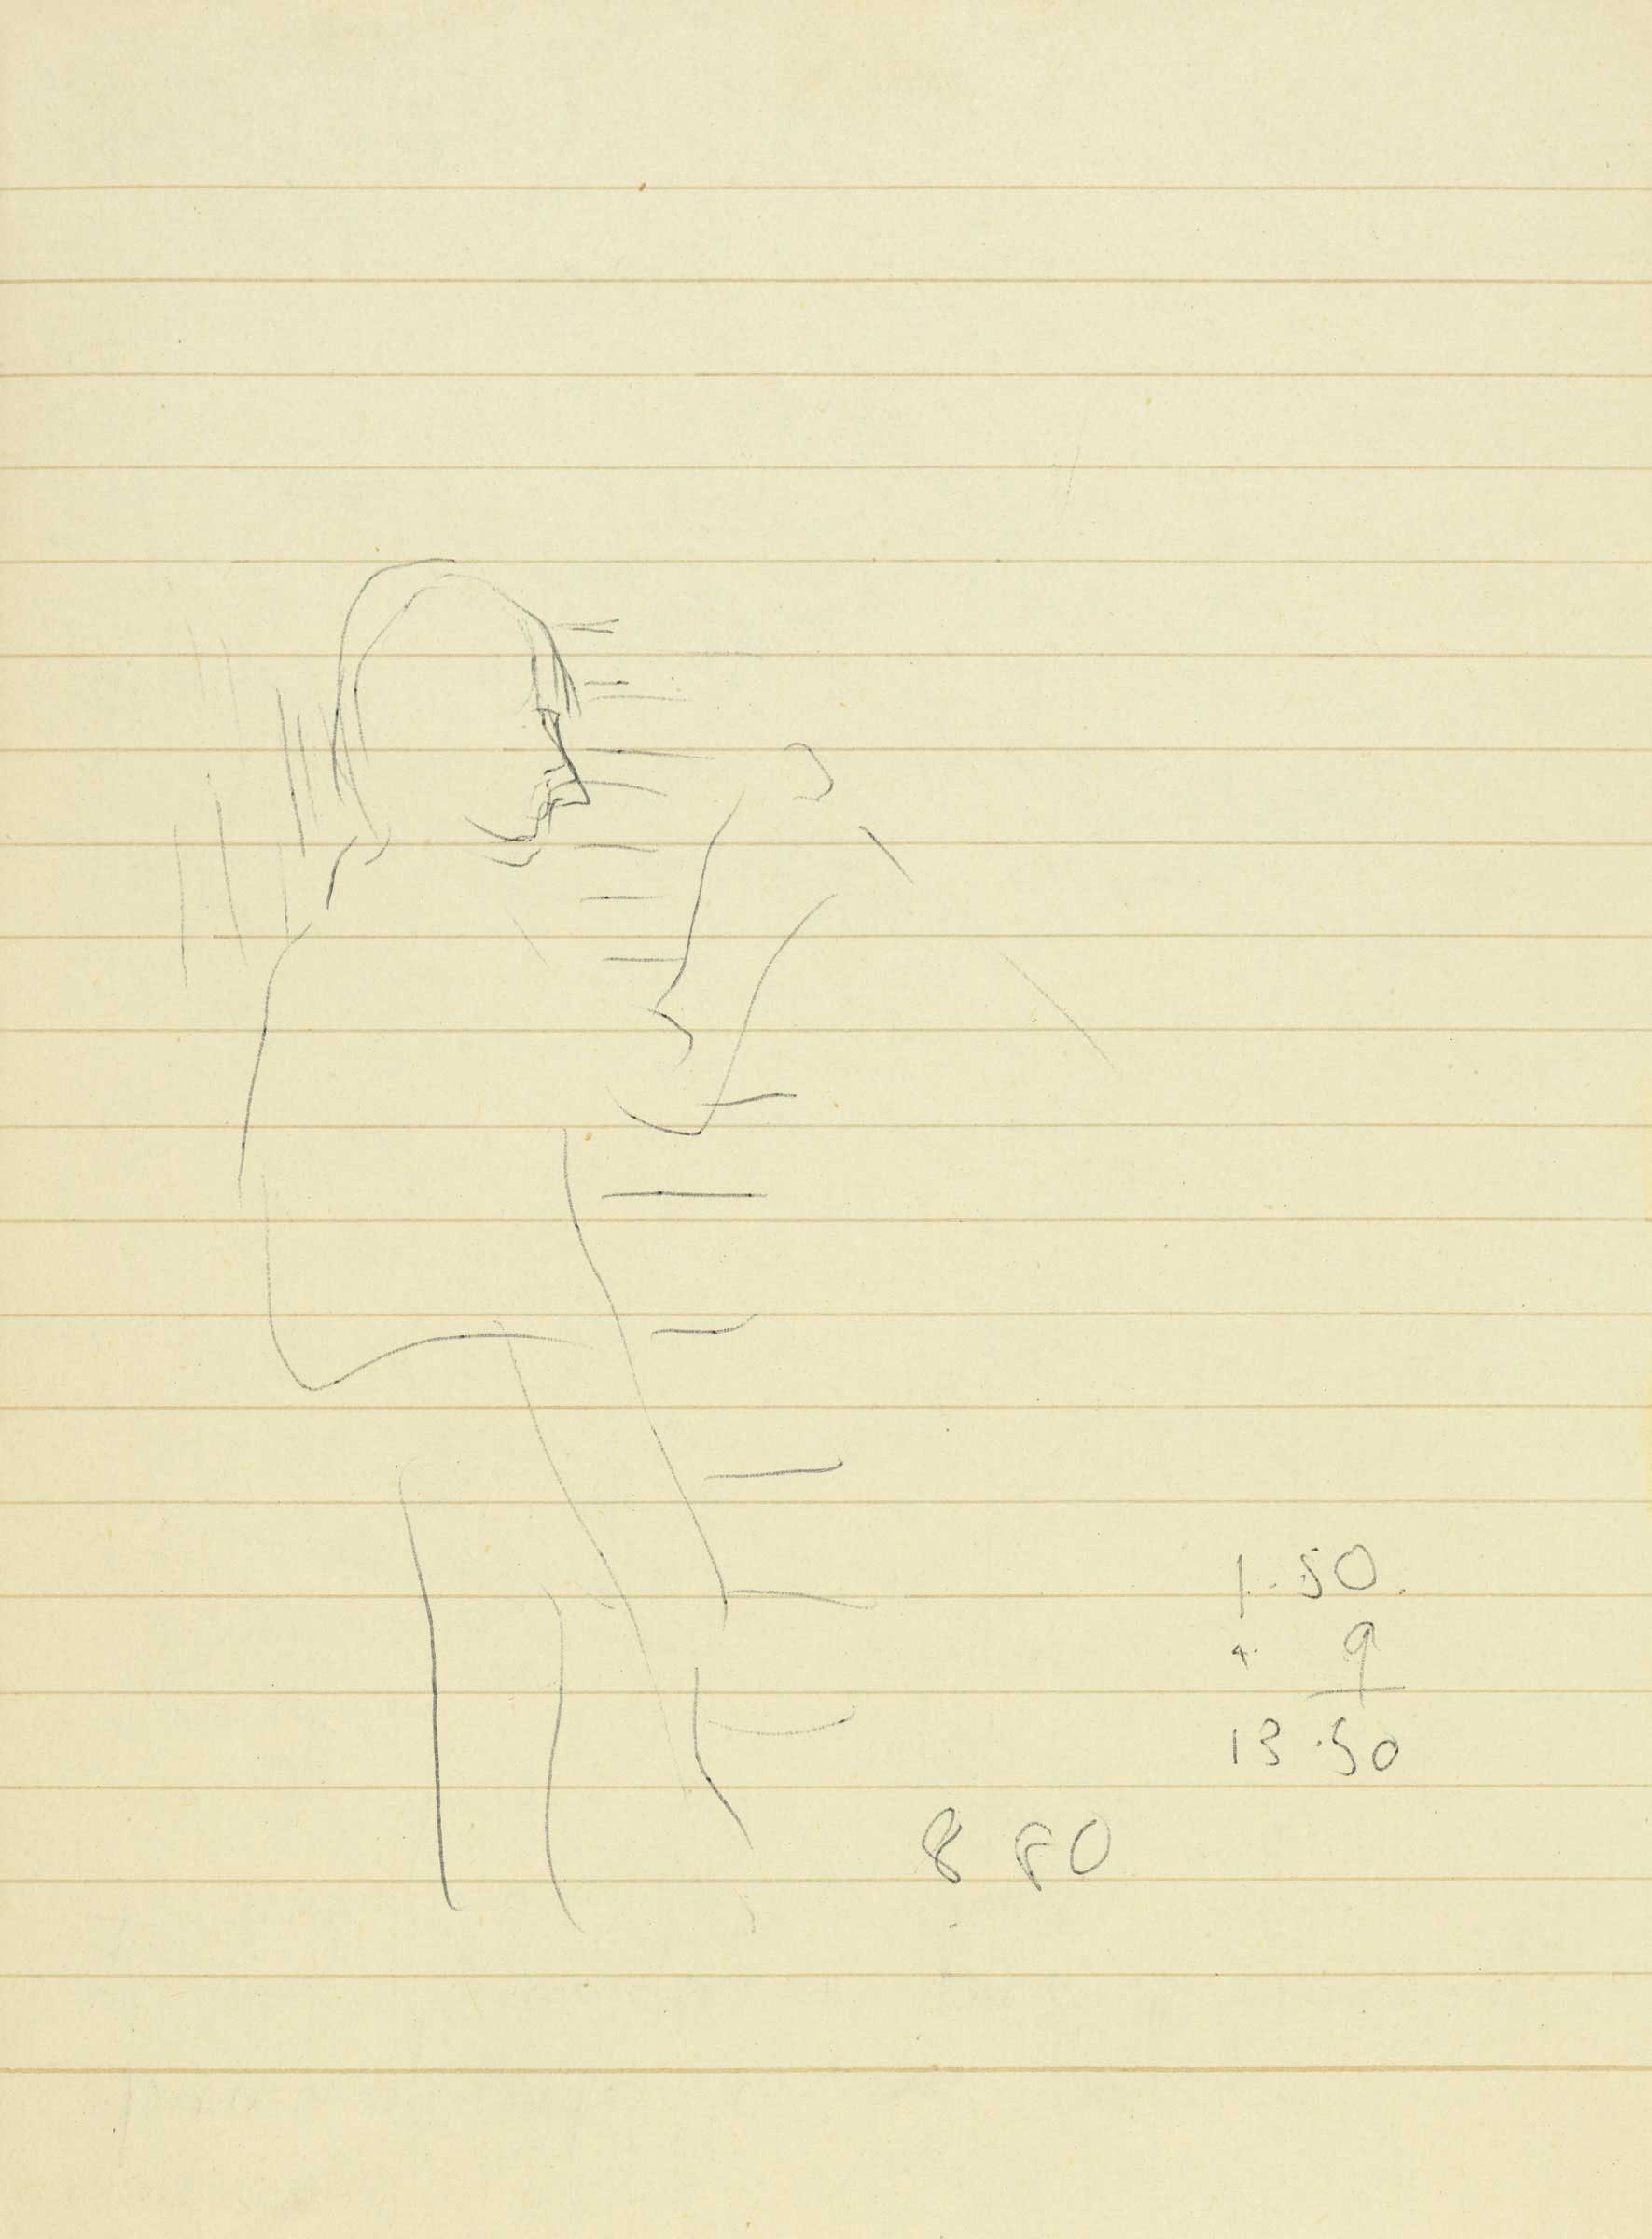 1.50
+ 9
13.50
8 80